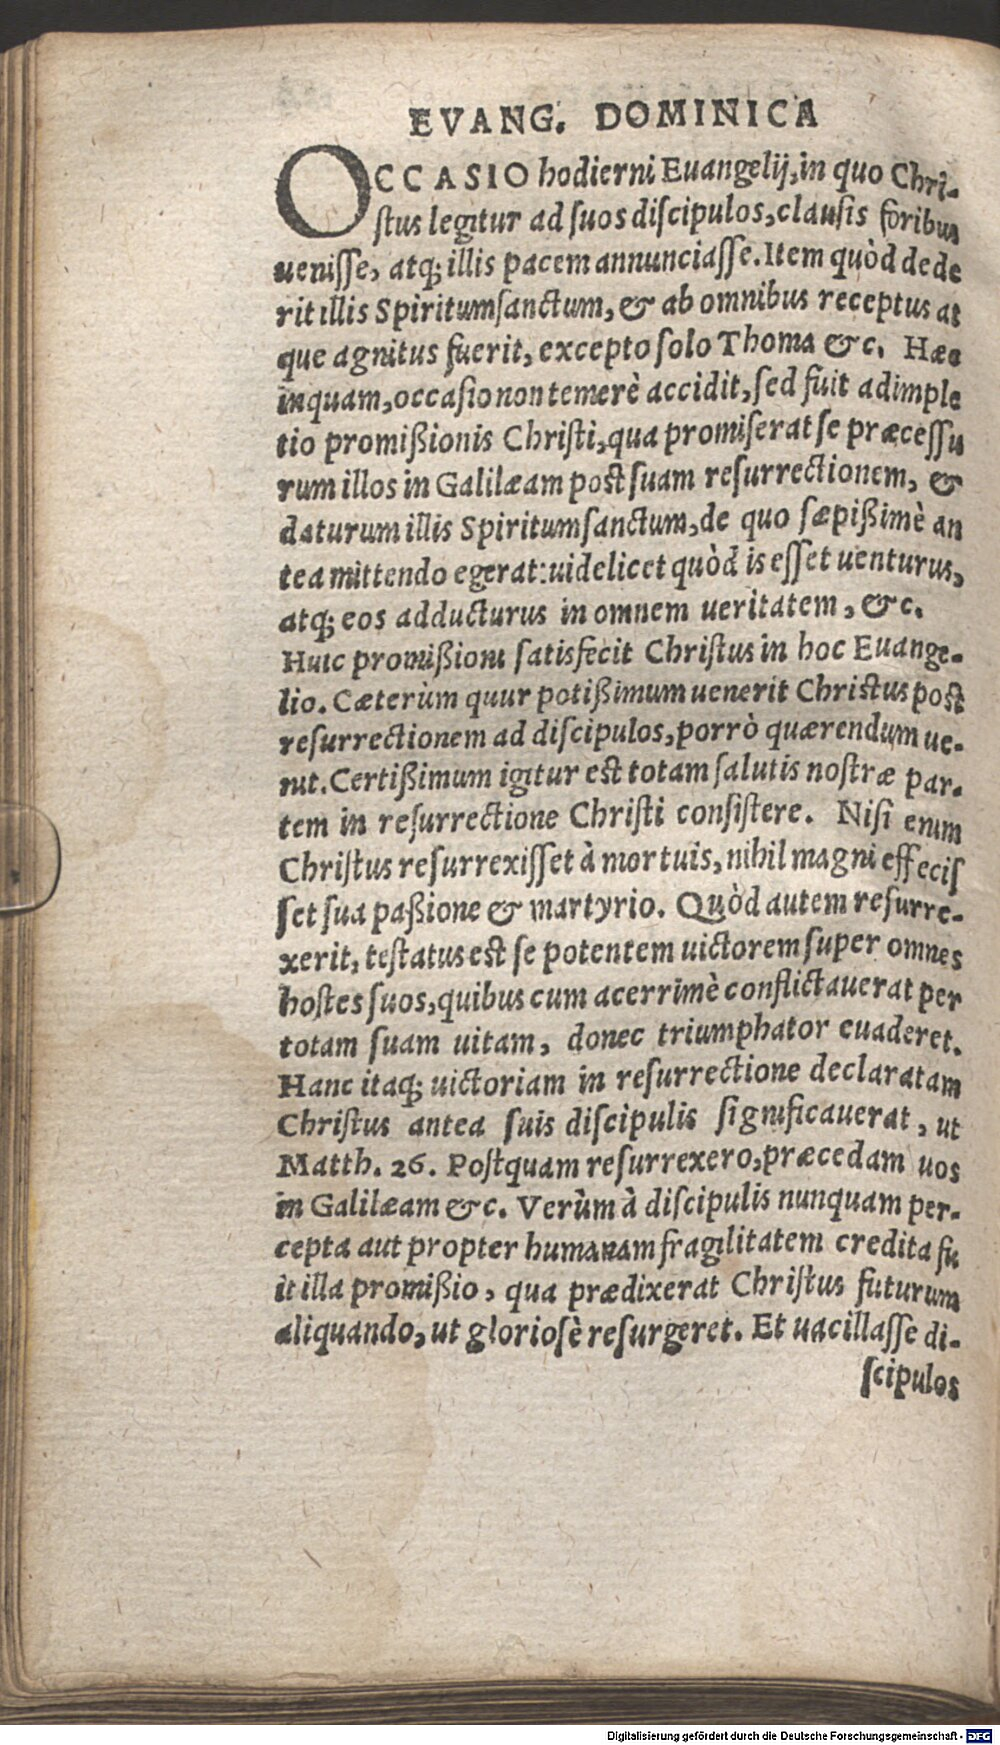 EVANG. DOMINICA
OCCASIO hodierni Euangelij, in quo Chri-
stus legitur ad suos discipulos, clausis foribus
uenisse, atq; illis pacem annunciasse. Item quòd dede
rit illis Spiritumsanctum, & ab omnibus receptus at
que agnitus fuerit, excepto solo Thoma &c. Hæc
inquam, occasio non temerè accidit, sed fuit adimple
tio promißionis Christi, qua promiserat se præcessu
rum illos in Galilæam post suam resurrectionem, &
daturum illis Spiritumsanctum, de quo sæpißimè an
tea mittendo egerat: uidelicet quòd is esset uenturus,
atq; eos adducturus in omnem ueritatem, &c.
Huic promißioni satisfecit Christus in hoc Euange-
lio. Cæterùm quur potißimum uenerit Christus post
resurrectionem ad discipulos, porrò quærendum ue-
nit. Certißimum igitur est totam salutis nostræ par-
tem in resurrectione Christi consistere. Nisi enim
Christus resurrexisset à mortuis, nihil magni effecis
set sua paßione & martyrio. Quòd autem resurre-
xerit, testatus est se potentem uictorem super omnes
hostes suos, quibus cum acerrimè conflictauerat per
totam suam uitam, donec triumphator euaderet.
Hanc itaq; uictoriam in resurrectione declaratam
Christus antea suis discipulis significauerat, ut
Matth. 26. Postquam resurrexero, præcedam uos
in Galilæam &c. Verùm à discipulis nunquam per-
cepta aut propter humanam fragilitatem credita fu
it illa promißio, qua prædixerat Christus futurum
aliquando, ut gloriosè resurgeret. Et uacillasse di-
scipulos
Digitalisierung gefördert durch die Deutsche Forschungsgemeinschaft - DFG